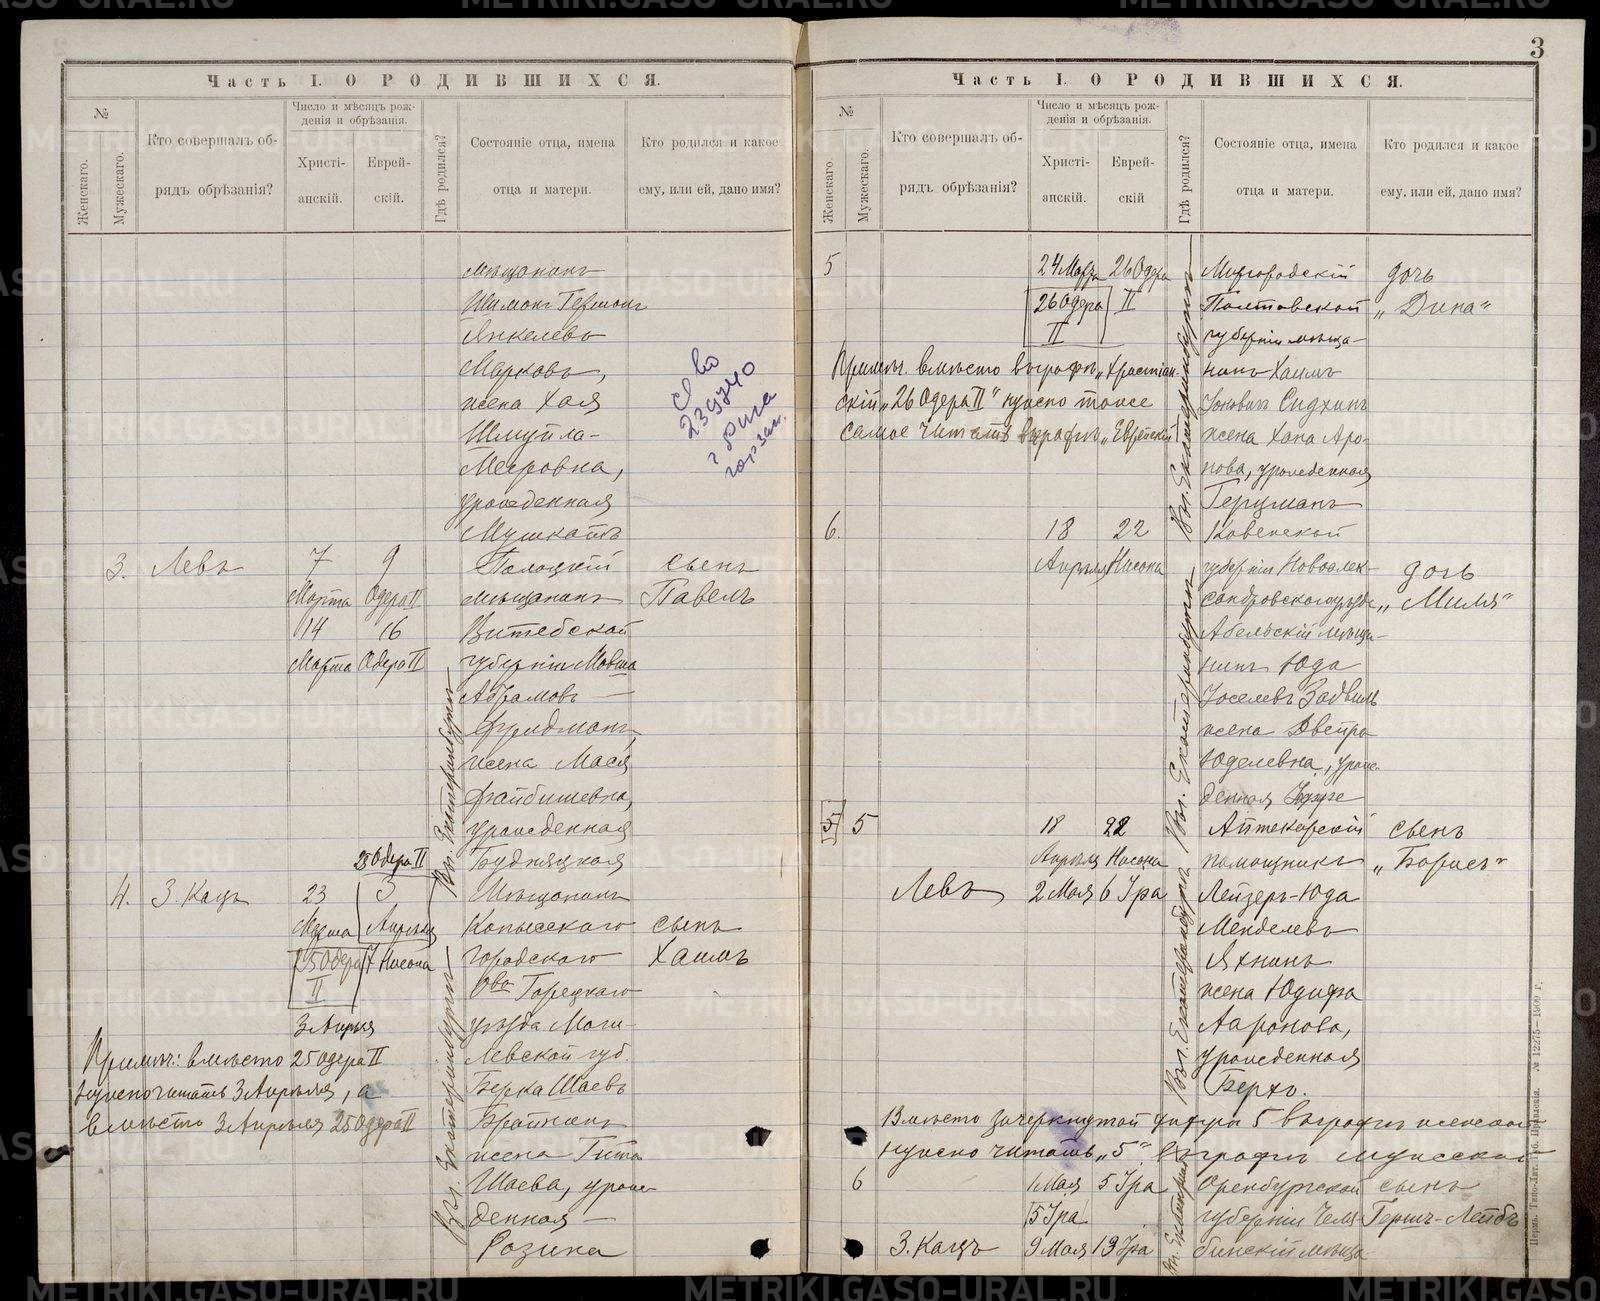 Часть I. О РОДИВШИХСЯ.
№
Женскаго.
Мужескаго.
Кто совершалъ об-
рядъ обрѣзанія?
Число и мѣсяцъ рож-
денія и обрѣзанія.
Христі-
анскій.
Еврей-
скій.
Гдѣ родился?
Состояніе отца, имена
отца и матери.
Кто родился и какое
ему, или ей, дано имя?
мѣщанинъ
Шимонъ Германъ
Янкелевъ
Марковъ,
жена Хая
Шмуйла-
Мееровна,
урожденная
Мушкатъ
239740
г. Рига
3. Левъ 7 9 Полоцкій сынъ
Марта Одера II мѣщанинъ Павелъ
14 16 Витебской
Марта Одера II губерніи Мовша
Абрамовъ
Фридманъ,
жена Мася
Файбишевна,
урожденная
25 Одера II Будняцкая
Въ г. Екатеринбургѣ
4. З. Кацъ 23 3 Мѣщанинъ
Марта Апрѣля Копысскаго сынъ
25 Одера 7 Нисона городского Хаимъ
II Ова Горецкаго
3 Апрѣля уѣзда Моги-
левской губ.
Примѣч: вмѣсто 25 Одера II
нужно читать 3 Апрѣля, а
вмѣсто 3 Апрѣля 25 Одера II
Берка Шаевъ
Брайнинъ
жена Гита
Шаева, урож-
денная
Розина
Въ г. Екатеринбургѣ
3
Часть I. О РОДИВШИХСЯ.
№
Женскаго
Мужескаго.
Кто совершалъ об-
рядъ обрѣзанія?
Число и мѣсяцъ рож-
денія и обрѣзанія.
Христі-
анскій.
Еврей-
скій
Гдѣ родился?
Состояніе отца, имена
отца и матери.
Кто родился и какое
ему, или ей, дано имя?
5 24 Марта 26 Одера Миргородскій дочь
26 Одера II Полтавской „Дина"
II губерніи мѣща-
Примѣч. вмѣсто въ графѣ „Христіан-
скій „26 Одера II" нужно тоже
самое читать въ графѣ „Еврейскій"
нинъ Хаимъ
жена Хана Аро-
нова, урожденная
Герцманъ
Въ г. Екатеринбургѣ
6. 18 22 Ковенской
Апрѣля Нисона губерніи Новоалек- дочь
сандровскаго уѣзда „Миля"
Абельскій мѣща-
нинъ Юда
Іоселевъ Задвиль
жена Двейра
Юделевна, урож-
денная
Въ г. Екатеринбургѣ
5 5 18 22 Аптекарскій сынъ
Апрѣля Нисона помощникъ „Борисъ"
Левъ 2 Мая 6 Іра Лейзеръ-Юда
Менделевъ
Яхнинъ
жена Юдифа
Ааронова,
урожденная
Берхъ.
Въ г. Екатеринбургѣ
Вмѣсто зачеркнутой цифры 5 въ графѣ женской
нужно читать „5" въ графѣ мужской
6 1 Мая 5 Іра Оренбургской сынъ
5 Іра губерніи Челя- Гершъ-Лейбъ
З. Кацъ 9 Мая 13 Іра бинскій мѣща-
Пермь. Типо-Лит. Губ. Правленія. № 12275—1909 г.
METRIKI.GASO-URAL.RU